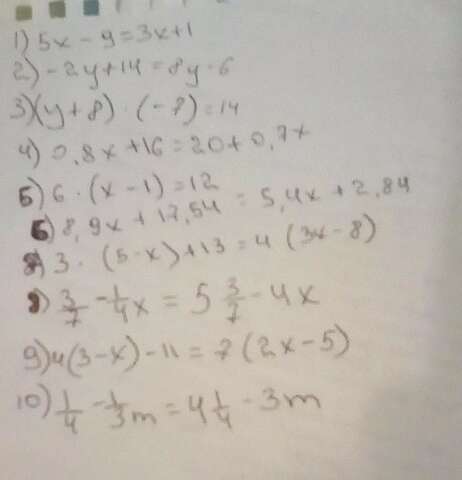 1) 5x - 9 = 3x + 1
2) -2y + 14 = 8y - 6
3) (y + 8) · (-7) = 14
4) 0,8x + 16 = 20 + 0,7x
5) 6 · (x - 1) = 12
6) 8,9x + 17,54 = 5,4x + 2,84
7) 3 · (5 - x) + 13 = 4 (3x - 8)
8) 3/7 - 1/4x = 5 3/7 - 4x
9) 4(3 - x) - 11 = 7 (2x - 5)
10) 1/4 - 1/3m = 4 1/4 - 3m